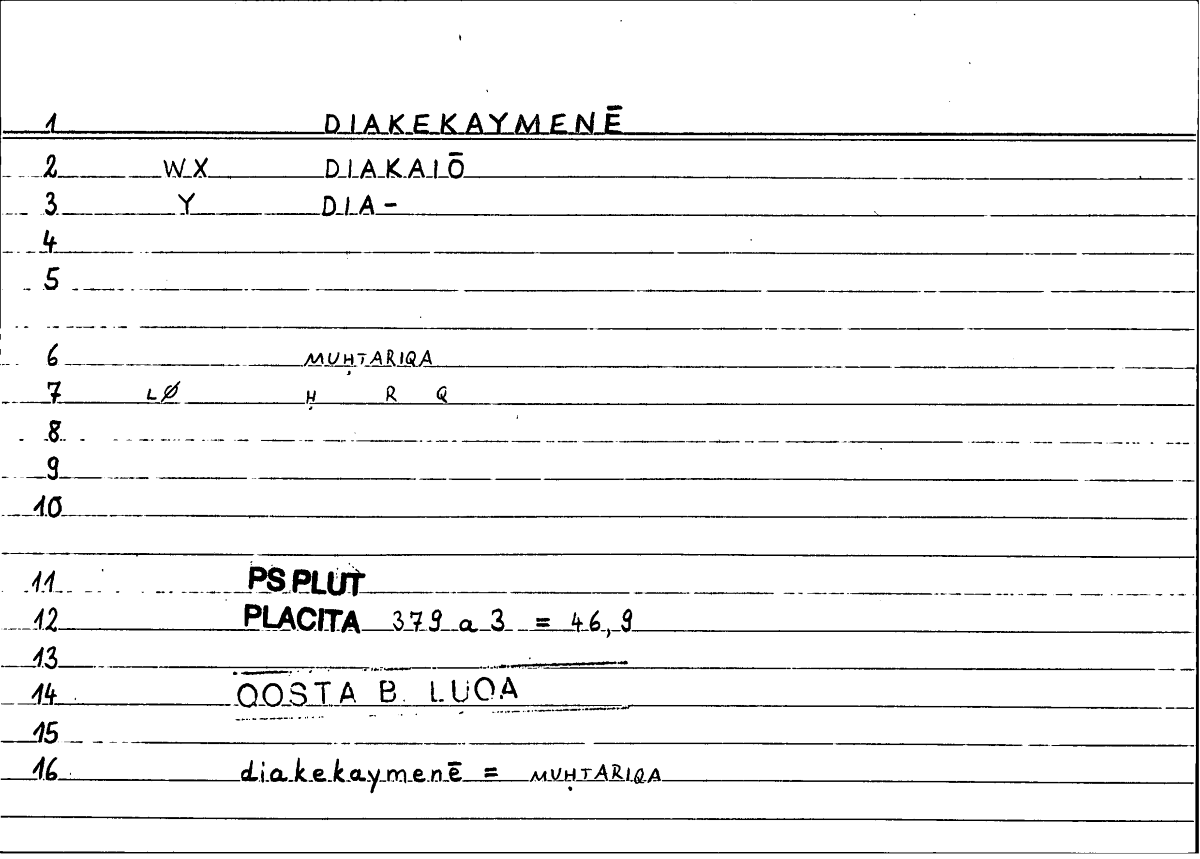 1 DIAKEKAYMENĒ
2 WX DIAKAIŌ
3 Y DIA-
4
5
6 MUḤTARIQA
7 LØ Ḥ R Q
8
9
10
11 PS PLUT
12 PLACITA 379 a 3 = 46,9
13
14 QOSTA B. LUQA
15
16 diakekaymenē = MUḤTARIQA